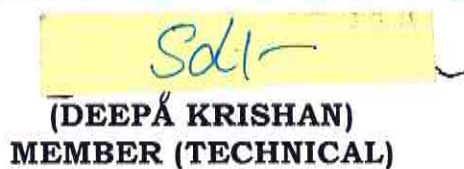 Sd/-
(DEEPA KRISHAN)
MEMBER (TECHNICAL)